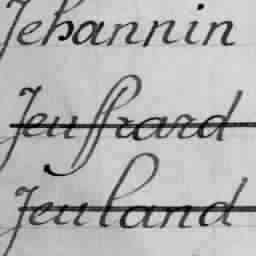 Jehannin
Jeuffrard
Jeuland